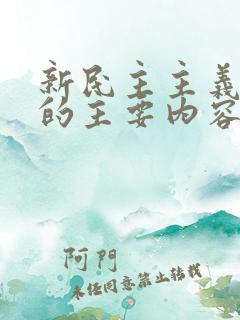 新民主主義
的主要内容
阿門
未经同意禁止转载